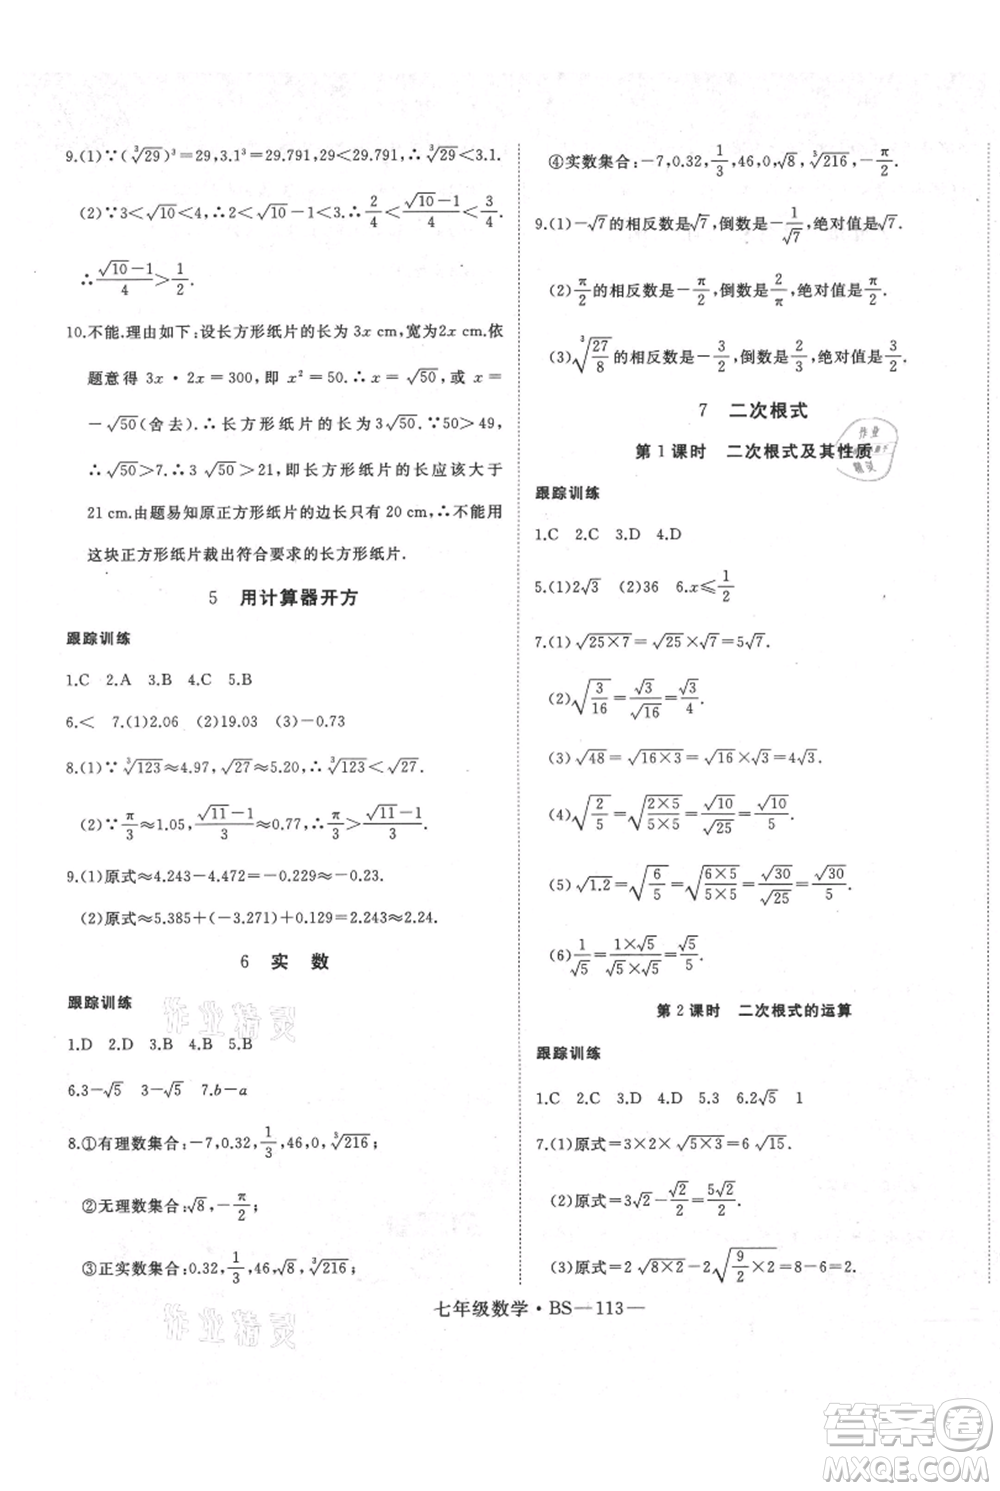 9.(1)∵(∛29)³=29,3.1³=29.791,29<29.791,∴∛29<3.1.
(2)∵3<√10<4,∴2<√10-1<3.∴2/4<(√10-1)/4<3/4.
∴(√10-1)/4>1/2.
10.不能.理由如下:设长方形纸片的长为3x cm,宽为2x cm.依
题意得 3x·2x=300,即 x²=50.∴x=√50,或 x=
-√50(舍去).∴长方形纸片的长为3√50 cm.∵50>49,
∴√50>7.∴3√50>21,∴长方形纸片的长应该大于
21 cm.由题易知原正方形纸片的边长只有 20 cm,∴不能用
这块正方形纸片裁出符合要求的长方形纸片.
5 用计算器开方
跟踪训练
1.C 2.A 3.B 4.C 5.B
6.< 7.(1)2.06 (2)19.03 (3)-0.73
8.(1)∵∛123≈4.97,√27≈5.20,∴∛123<√27.
(2)∵π/3≈1.05,(√11-1)/3≈0.77,∴π/3>(√11-1)/3.
9.(1)原式≈4.243-4.472=-0.229≈-0.23.
(2)原式≈5.385+(-3.271)+0.129=2.243≈2.24.
6 实 数
跟踪训练
1.D 2.D 3.B 4.D 5.B
6.3-√5 3-√5 7.b-a
8.①有理数集合:-7,0.32,1/3,46,0,∛216;
②无理数集合:√8,-π/2;
③正实数集合:0.32,1/3,46,√8,∛216;
④实数集合:-7,0.32,1/3,46,0,√8,∛216,-π/2.
9.(1)-√7的相反数是√7,倒数是-1/√7,绝对值是√7.
(2)π/2的相反数是-π/2,倒数是2/π,绝对值是π/2.
(3)∛(27/8)的相反数是-3/2,倒数是2/3,绝对值是3/2.
7 二次根式
第1课时 二次根式及其性质
作业
精灵
跟踪训练
1.C 2.C 3.D 4.D
5.(1)2√3 (2)36 6.x≤1/2
7.(1)√(25×7)=√25×√7=5√7.
(2)√(3/16)=√3/√16=√3/4.
(3)√48=√(16×3)=√16×√3=4√3.
(4)√(2/5)=√((2×5)/(5×5))=√10/√25=√10/5.
(5)√1.2=√(6/5)=√((6×5)/(5×5))=√30/√25=√30/5.
(6)1/√5=(1×√5)/(√5×√5)=√5/5.
第2课时 二次根式的运算
跟踪训练
1.C 2.C 3.D 4.D 5.3 6.2√5 1
7.(1)原式=3×2×√(5×3)=6√15.
(2)原式=3√2-√2/2=5√2/2.
(3)原式=2√(8×2)-2√(9/(2×2))=2×4-2×3/2=5.
七年级数学·BS—113—
作业精灵
作业精灵
答案卷
MXQE.COM